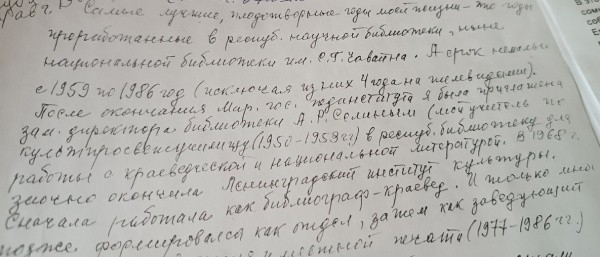 Самые лучшие, плодотворные годы моей жизни – это годы
проработанные в респуб. научной библиотеки, ныне
национальной библиотеки им. С.Г. Чавайна. А срок немалый
с 1959 по 1986 год (исключая из них 4 года на телевидении).
После окончания Мар. гос. пединститута я была приглашена
зам. директора библиотеки А.Р. (мой учитель по
культпросветучилищу (1950-1953 гг) в респуб. библиотеку для
работы с краеведческой и национальной литературой. В 1968 г.
заочно окончила Ленинградский институт культуры.
Сначала работала как библиограф-краевед. И только
позже формировался как отдел, затем как заведующий
и местной печати (1977-1986 гг.)